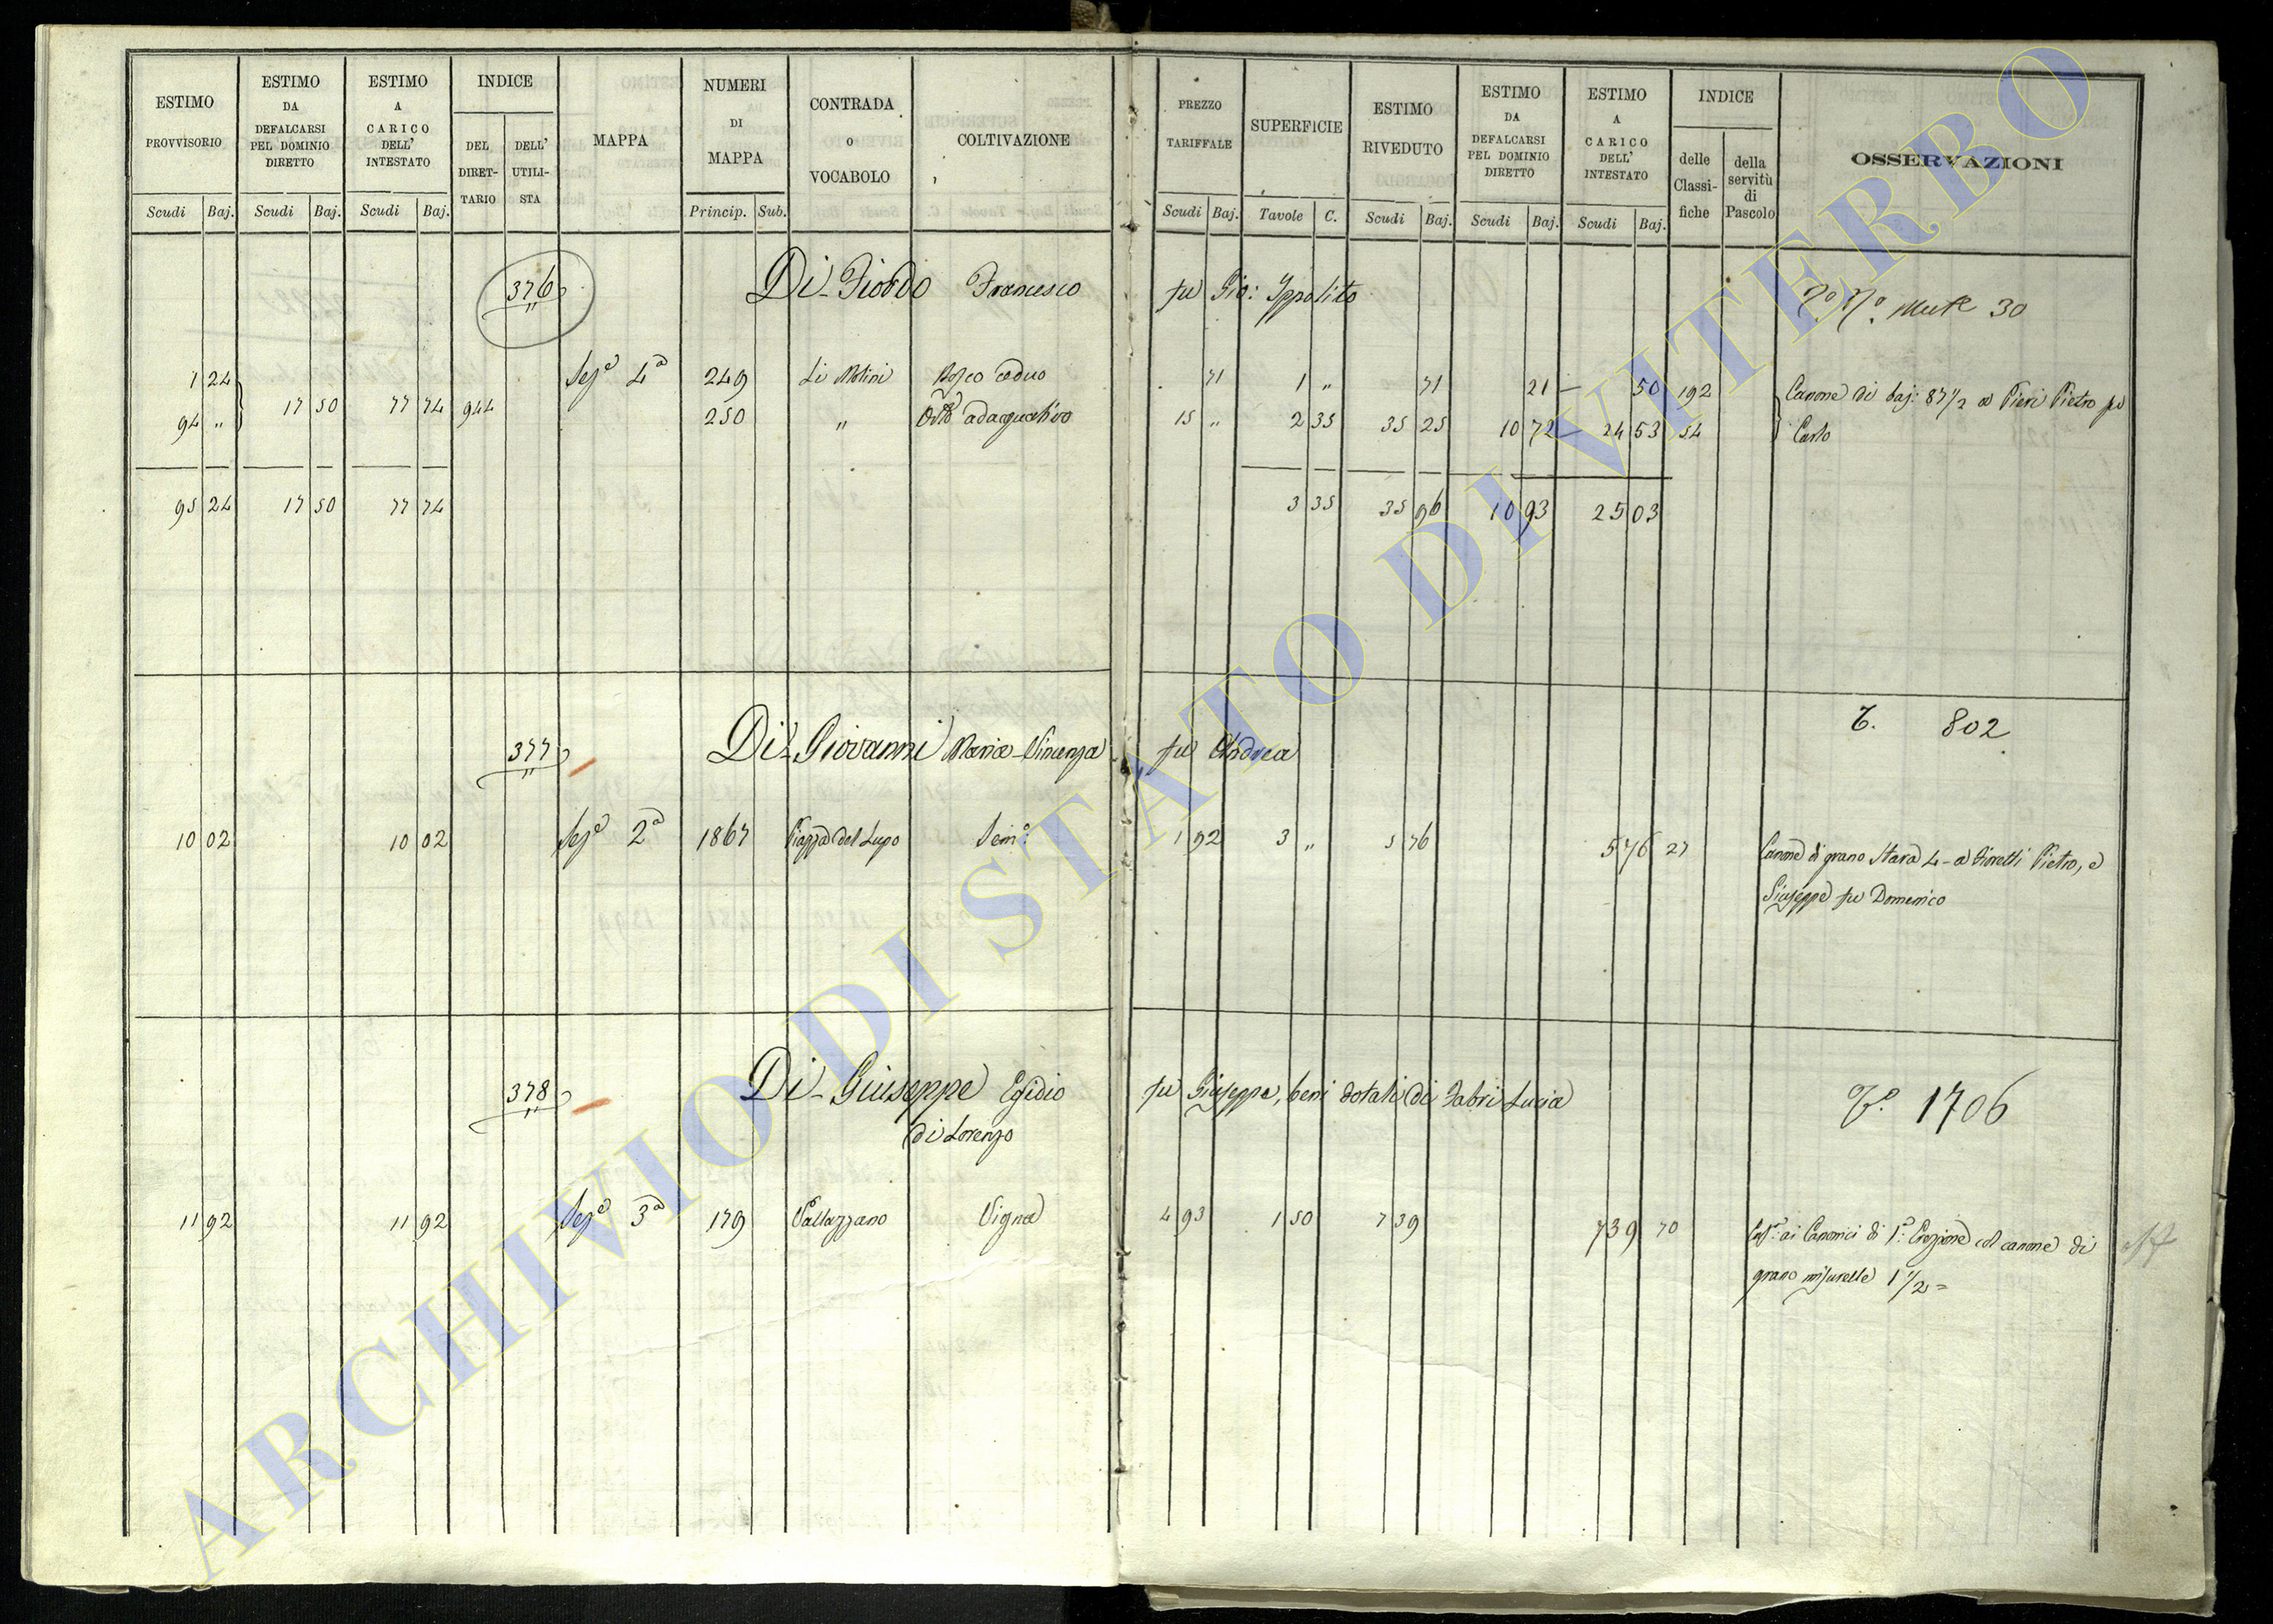 ESTIMO PROVVISORIO
ESTIMO DA DEFALCARSI PEL DOMINIO DIRETTO
ESTIMO A CARICO DELL' INTESTATO
INDICE
DEL DIRET-TARIO
DELL' UTILI-STA
MAPPA
NUMERI DI MAPPA
CONTRADA o VOCABOLO
COLTIVAZIONE
Scudi Baj. Scudi Baj. Scudi Baj. Princip. Sub.
PREZZO TARIFFALE
SUPERFICIE
ESTIMO RIVEDUTO
ESTIMO DA DEFALCARSI PEL DOMINIO DIRETTO
ESTIMO A CARICO DELL' INTESTATO
INDICE
delle Classi-fiche
della servitù di Pascolo
OSSERVAZIONI
Scudi Baj. Tavole C. Scudi Baj. Scudi Baj. Scudi Baj.
376 Di Fiordo Francesco fu Gio: Ippolito 30
1 24 Sez.e 4a 249 Li Molini Bosco ceduo 71 1 " 71 21 50 192 Canone di baj: 87 1/2 a Pieri Pietro fu
94 " 17 50 77 74 944 250 " Orto adacquativo 15 " 2 35 35 25 10 72 24 53 54 Carlo
95 24 17 50 77 74 3 35 35 96 10 93 25 03
T. 802
377 Di Giovanni Maria Vincenza fu Andrea
10 02 10 02 Sez.e 2a 1867 Piazza del Lupo Sem.o 1 92 3 " 5 76 5 76 27 Canone di grano Stara 4 a Fioretti Pietro, e
Giuseppe fu Domenico
378 Di Giuseppe Egidio fu Giuseppe, beni dotali di Fabri Lucia T.o 1706
di Lorenzo
11 92 11 92 Sez.e 3a 179 Vallazzano Vigna 4 93 1 50 7 39 7 39 70 ai Canonici di 1.a Erezione col canone di
grano misurelle 1 1/2
ARCHIVIO DI STATO DI VITERBO